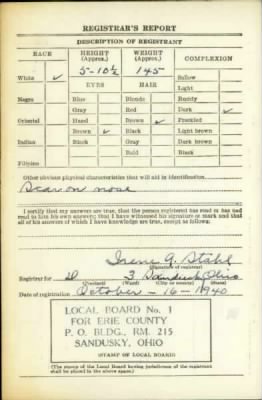 REGISTRAR'S REPORT
DESCRIPTION OF REGISTRANT
RACE HEIGHT (Approx.) WEIGHT (Approx.) COMPLEXION
5-10½ 145
White ✓ Sallow
EYES HAIR Light
Negro Blue Blonde Ruddy
Gray Red Dark ✓
Oriental Hazel Brown ✓ Freckled
Brown ✓ Black Light brown
Indian Black Gray Dark brown
Bald Black
Filipino
Other obvious physical characteristics that will aid in identification
Scar on nose
I certify that my answers are true; that the person registered has read or has had
read to him his own answers; that I have witnessed his signature or mark and that
all of his answers of which I have knowledge are true, except as follows:
Irene G. Stahl
(Signature of registrar)
Registrar for 3 Sandusky Ohio
(Precinct) (Ward) (City or county) (State)
Date of registration October - 16 - 1940
LOCAL BOARD No. 1
FOR ERIE COUNTY
P. O. BLDG., RM. 215
SANDUSKY, OHIO
(STAMP OF LOCAL BOARD)
(The stamp of the Local Board having jurisdiction of the registrant
shall be placed in the above space.)